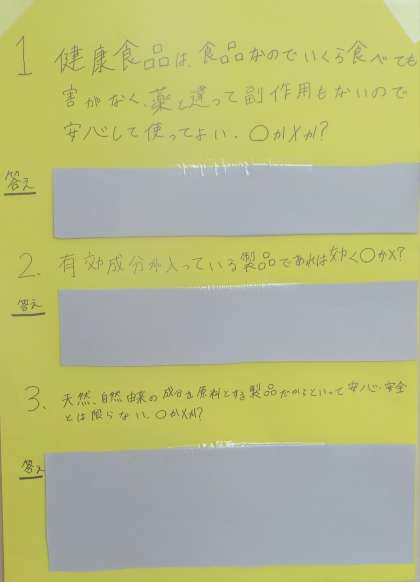 1 健康食品は、食品なのでいくら食べても
害がなく、薬と違って副作用もないので
安心して使ってよい。〇か×か?
答え
2. 有効成分が入っている製品であれば効く〇か×?
答え
3. 天然、自然由来の成分を原料とする製品だからといって安心・安全
とは限らない。〇か×か?
答え